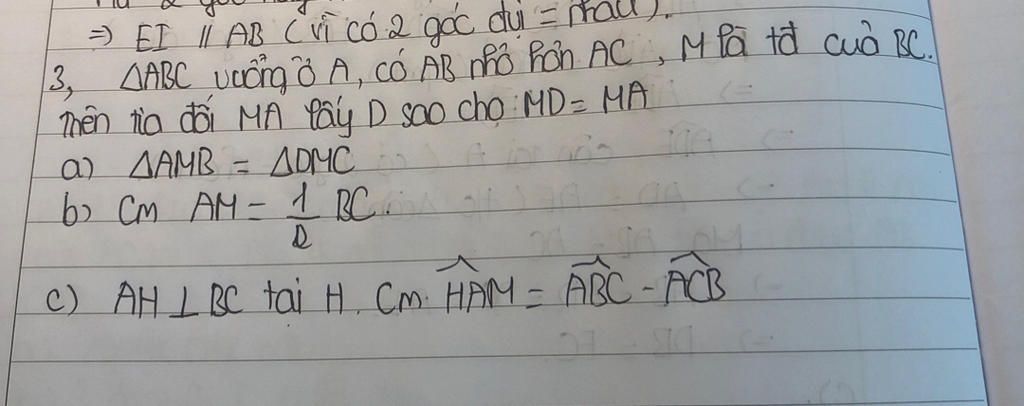 ⇒ EI // AB (vì có 2 góc dụ = nhau).
3, ΔABC vuông ở A, có AB nhỏ hơn AC, M là tđ cuả BC.
Trên tia đối MA lấy D sao cho: MD = MA
a) ΔAMB = ΔDMC
b) Cm AM = 1/2 BC.
c) AH ⊥ BC tại H. Cm. \widehat{HAM} = \widehat{ABC} - \widehat{ACB}